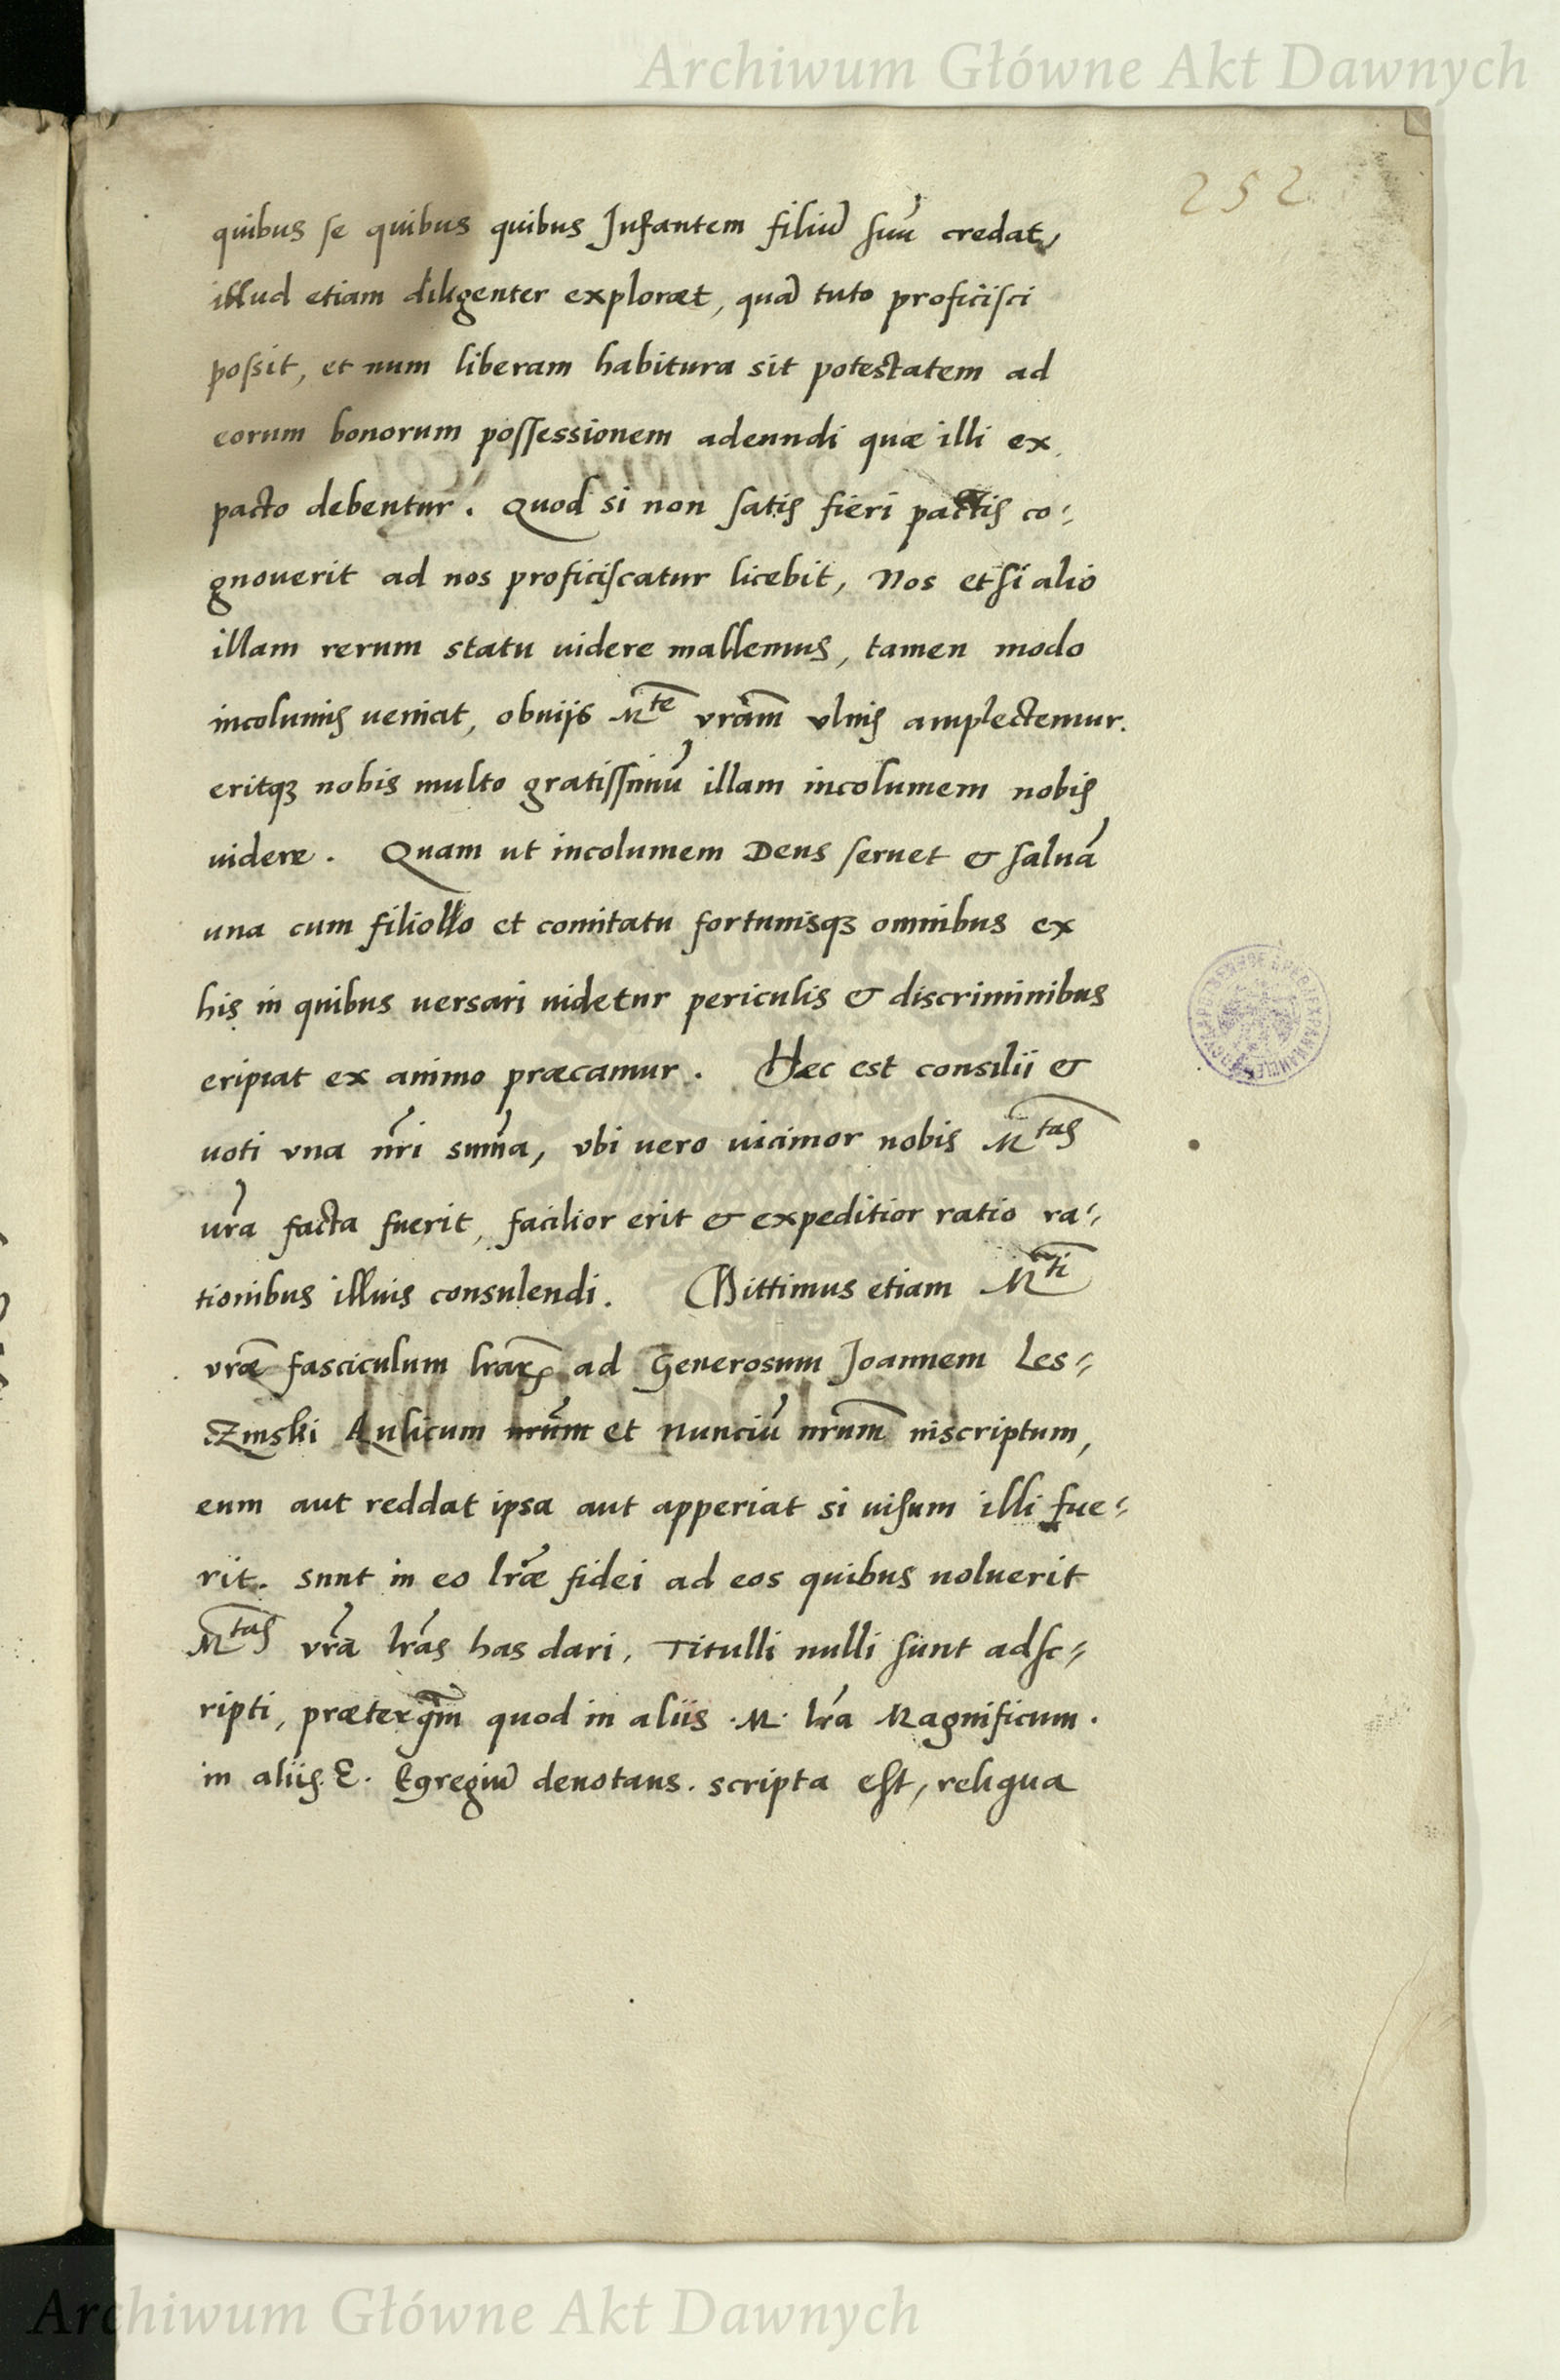 Archiwum Główne Akt Dawnych
252
quibus se quibus quibus Infantem filiu̅ suu̅ credat,
illud etiam diligenter exploræt, qua̅ tuto proficisci
possit, et num liberam habitura sit potestatem ad
eorum bonorum possessionem adeundi quæ illi ex
pacto debentur. Quod si non satis fieri pactis co-
gnouerit ad nos proficiscatur licebit, Nos etsi alio
illam rerum statu uidere mallemus, tamen modo
incolumis ueniat, obuijs Mte vram̅ vlnis amplectemur.
eritqʒ nobis multo gratissimu̅ illam incolumem nobis
uidere. Quam ut incolumem Deus seruet & salua̅
una cum filiollo et comitatu fortunisqʒ omnibus ex
his in quibus uersari uidetur periculis & discriminibus
eripiat ex animo præcamur. Hæc est consilii &
uoti una nr̅i sum̅a, vbi uero uicinior nobis Mtas
ur̅a facta fuerit, facilior erit & expeditior ratio ra-
tionibus illius consulendi. Mittimus etiam Mti
vræ̅ fasciculum lr̅arꝝ ad Generosum Joannem Les-
Zinski Aulicum nr̅um et Nunciu̅ nrum̅ inscriptum,
eum aut reddat ipsa aut apperiat si uisum illi fue-
rit. Sunt in eo lr̅æ fidei ad eos quibus uoluerit
Mtas vr̅a lr̅as has dari, Titulli nulli sunt adsc-
ripti, præterqm̅ quod in aliis .M. lr̅a Magnificum.
in aliis .E. Egregiu̅ denotans. scripta est, reliqua
Archiwum Główne Akt Dawnych